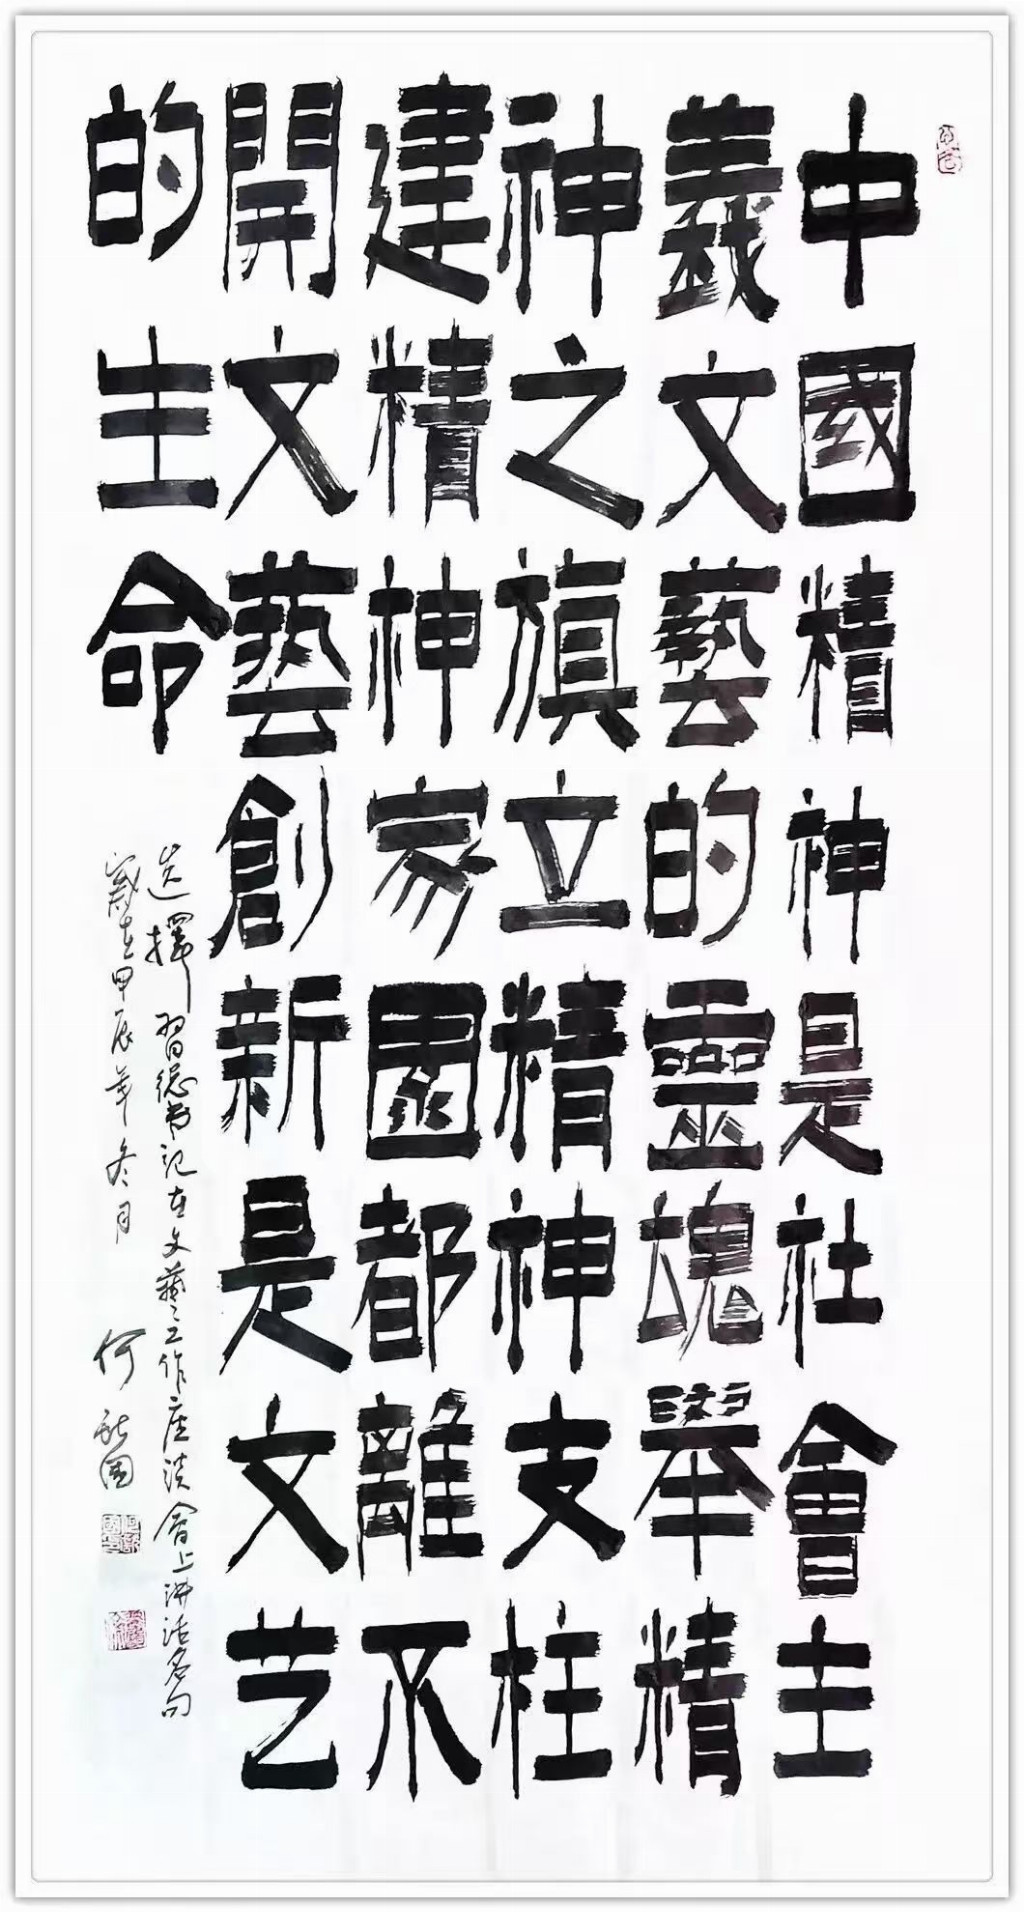 中國精神是社會主
義文藝的靈魂舉精
神之旗立精神支柱
建精神家園都離不
開文藝創新是文艺
的生命
选擇習総书记在文藝工作座谈會上讲话名句
歲在甲辰年冬月 何新國